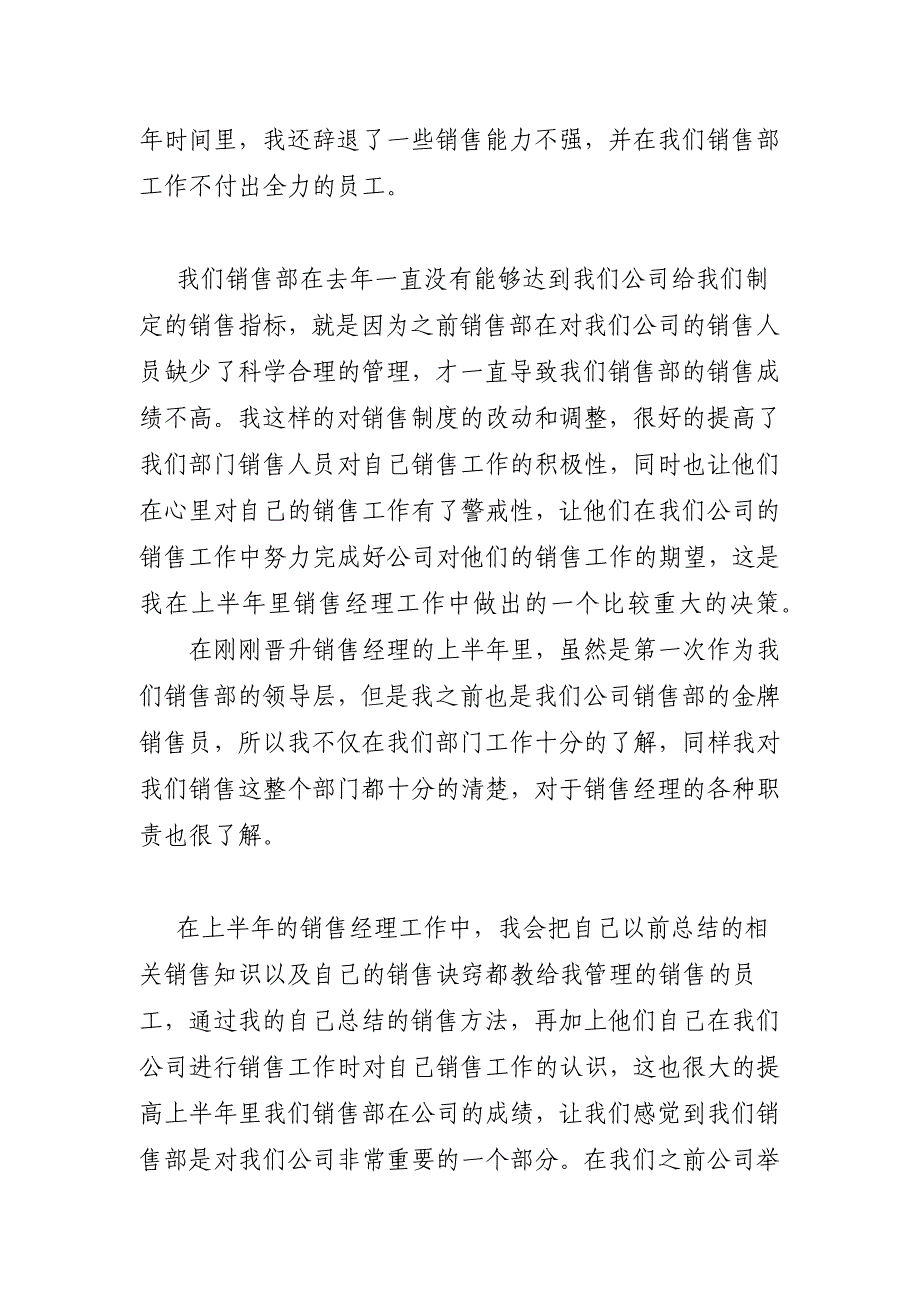 年时间里，我还辞退了一些销售能力不强，并在我们销售部
工作不付出全力的员工。
我们销售部在去年一直没有能够达到我们公司给我们制
定的销售指标，就是因为之前销售部在对我们公司的销售人
员缺少了科学合理的管理，才一直导致我们销售部的销售成
绩不高。我这样的对销售制度的改动和调整，很好的提高了
我们部门销售人员对自己销售工作的积极性，同时也让他们
在心里对自己的销售工作有了警戒性，让他们在我们公司的
销售工作中努力完成好公司对他们的销售工作的期望，这是
我在上半年里销售经理工作中做出的一个比较重大的决策。
在刚刚晋升销售经理的上半年里，虽然是第一次作为我
们销售部的领导层，但是我之前也是我们公司销售部的金牌
销售员，所以我不仅在我们部门工作十分的了解，同样我对
我们销售这整个部门都十分的清楚，对于销售经理的各种职
责也很了解。
在上半年的销售经理工作中，我会把自己以前总结的相
关销售知识以及自己的销售诀窍都教给我管理的销售的员
工，通过我的自己总结的销售方法，再加上他们自己在我们
公司进行销售工作时对自己销售工作的认识，这也很大的提
高上半年里我们销售部在公司的成绩，让我们感觉到我们销
售部是对我们公司非常重要的一个部分。在我们之前公司举